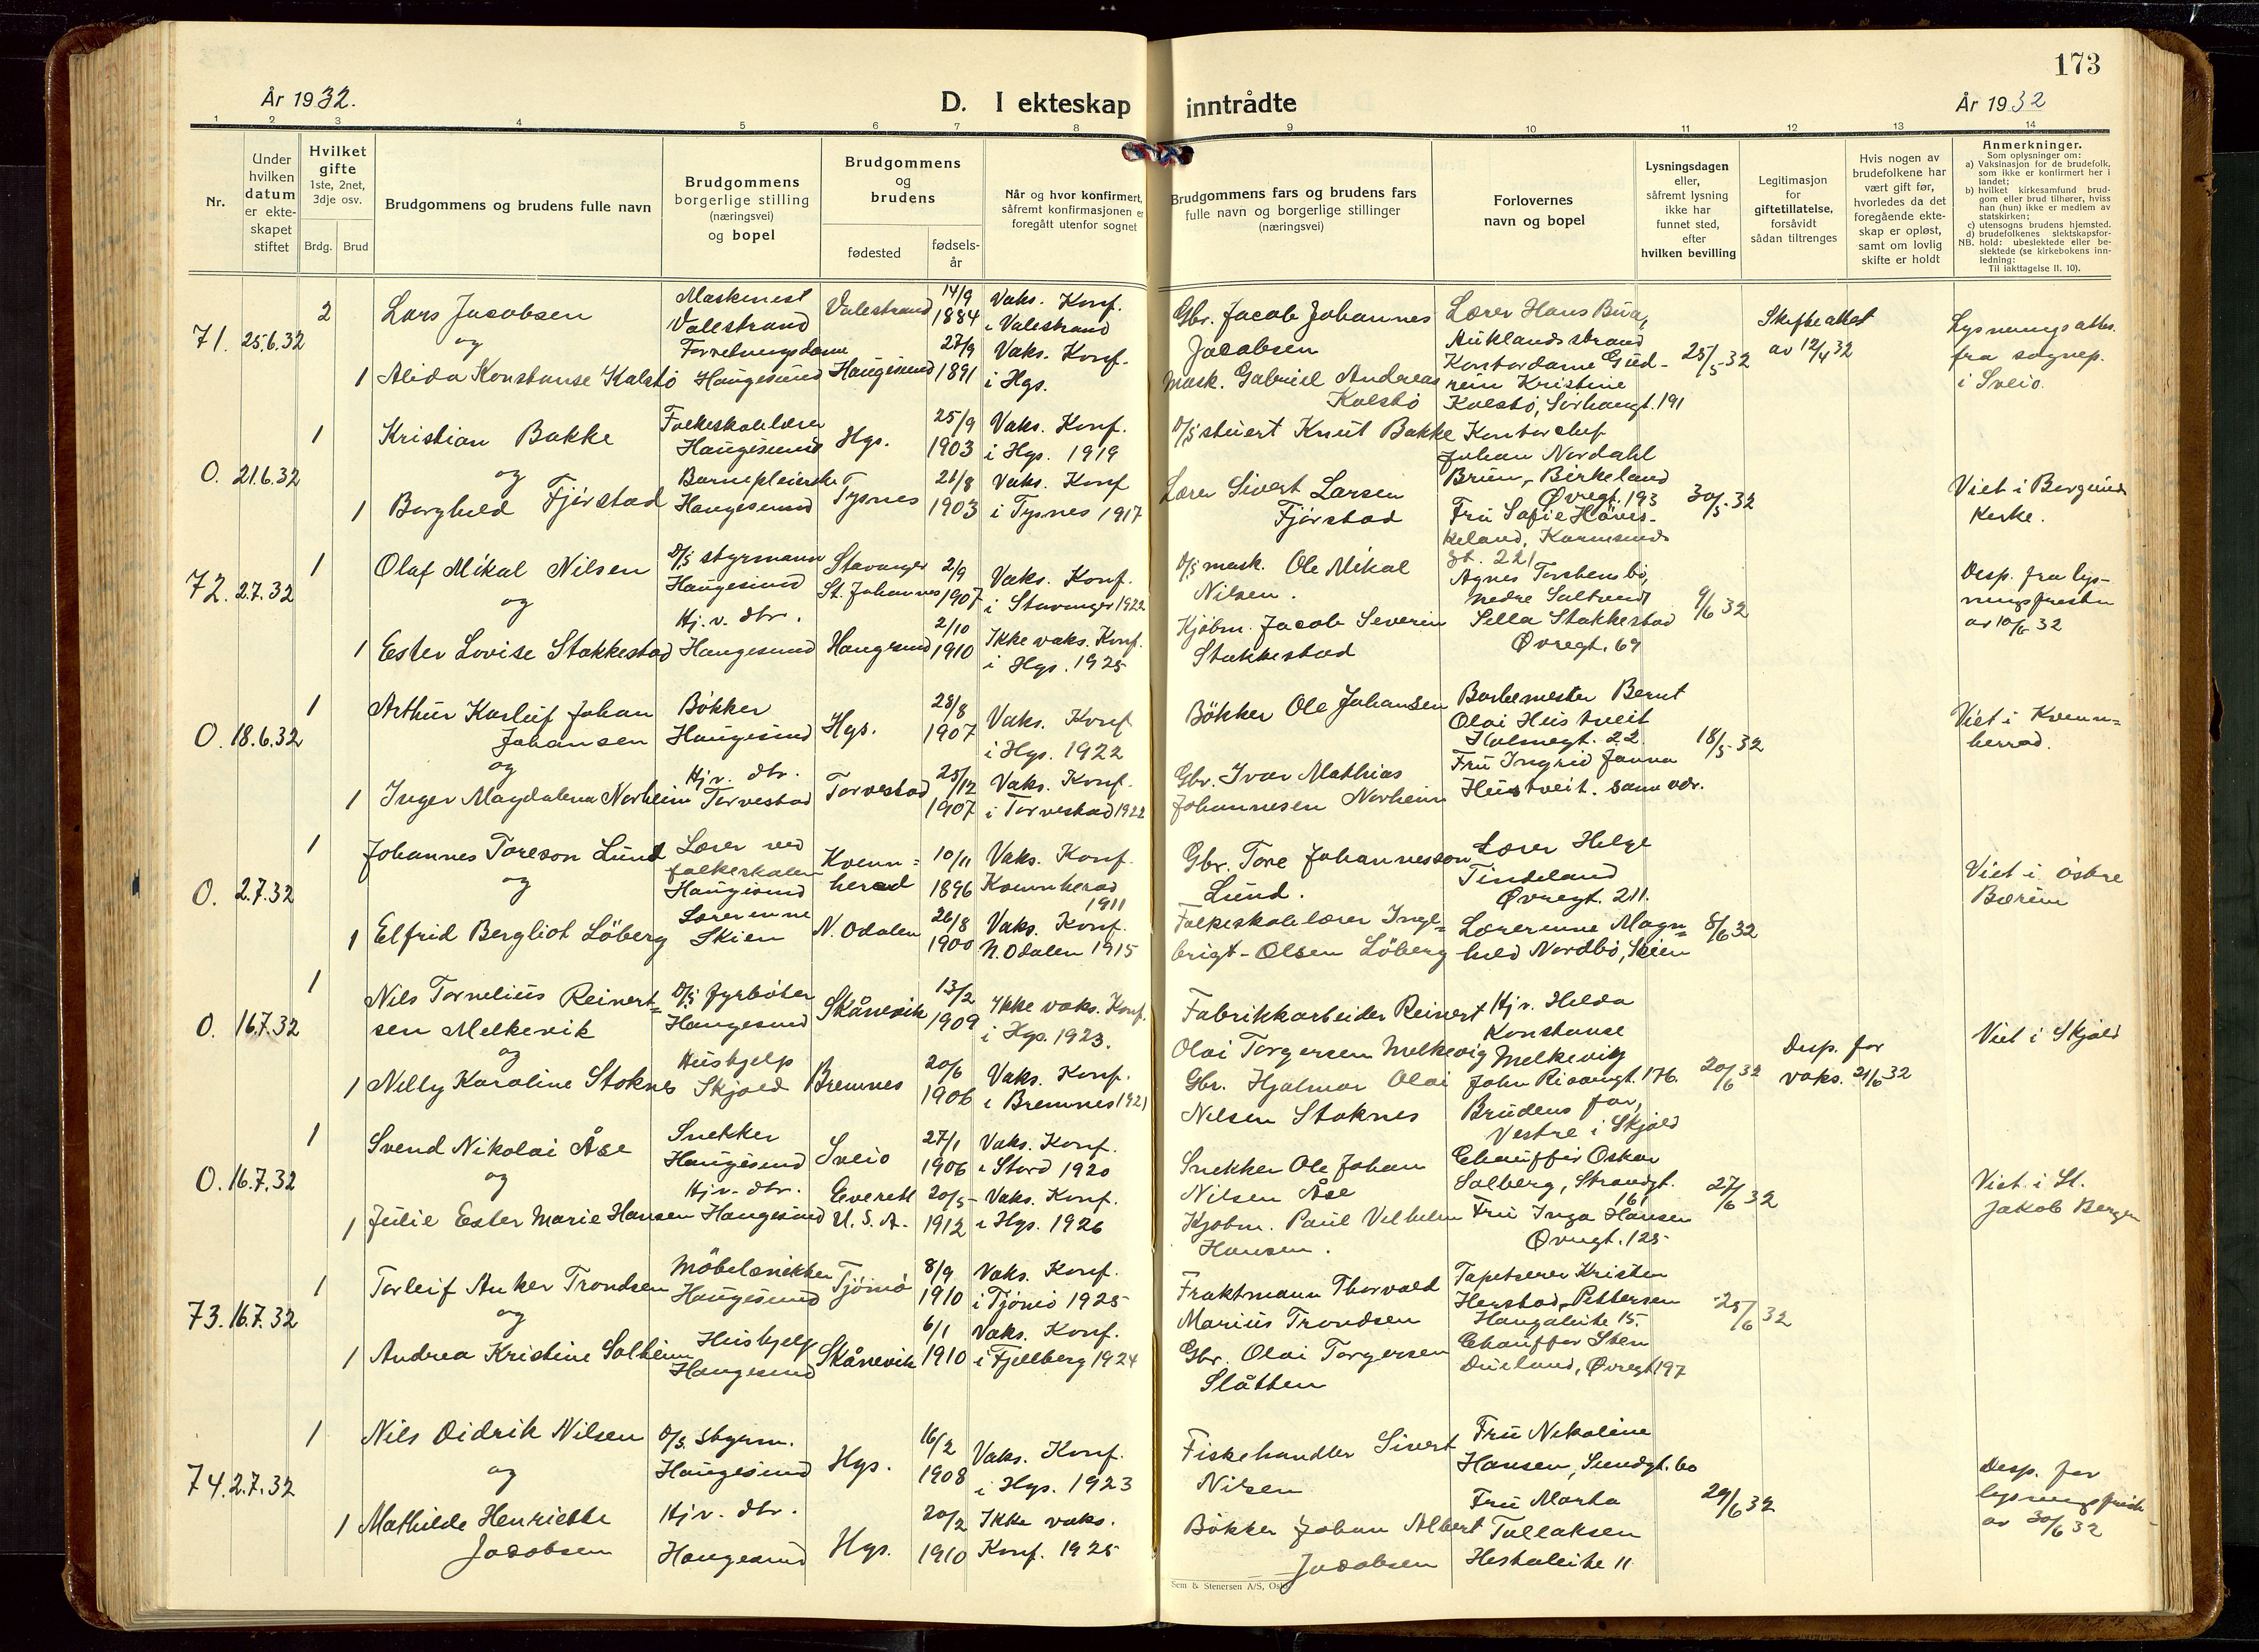 173
År 1932.
D. I ekteskap inntrådte
År 1932
1 2 3 4 5 6 7 8 9 10 11 12 13 14
Nr.
Under hvilken datum er ekteskapet stiftet
Hvilket gifte
1ste, 2net, 3dje osv.
Brdg. Brud
Brudgommens og brudens fulle navn
Brudgommens borgerlige stilling (næringsvei) og bopel
Brudgommens og brudens
fødested
fødselsår
Når og hvor konfirmert, såfremt konfirmasjonen er foregått utenfor sognet
Brudgommens fars og brudens fars fulle navn og borgerlige stillinger (næringsvei)
Forlovernes navn og bopel
Lysningsdagen eller, såfremt lysning ikke har funnet sted, efter hvilken bevilling
Legitimasjon for giftetillatelse, forsåvidt sådan tiltrenges
Hvis nogen av brudefolkene har vært gift før, hvorledes da det foregående ekteskap er opløst, samt om lovlig skifte er holdt
Anmerkninger.
Som oplysninger om:
a) Vaksinasjon for de brudefolk, som ikke er konfirmert her i landet;
b) hvilket kirkesamfund brudgom eller brud tilhører, hviss han (hun) ikke er medlem av statskirken;
c) utensogns brudens hjemsted.
d) brudefolkenes slektskapsforhold: ubeslektede eller beslektede (se kirkebokens innledning:
NB. Til iakttagelse II. 10).
71. 25.6.32
2 Lars Jacobsen
Maskinist
Valestrand
Valestrand
14/9 1884
Vaks. Konf.
i Valestrand
og
1 Alida Konstanse Kalstø
Forretningsdame
Haugesund
Haugesund
27/9 1891
Vaks. Konf.
i Hgs.
Gbr. Jacob Johannes
Jacobsen
Mask. Gabriel Andreas
Kalstø
Lærer Hans Bua,
Auklandsstrand
Kontordame Gud-
run Kristine
Kalstø, Sørhaugt. 191
25/5-32
Skifteattest
av 12/4 32
Lysningsattes.
fra sognep.
i Sveio.
0. 21.6.32
1 Kristian Bakke
Folkeskolelærer
Haugesund
Hgs.
25/9 1903
Vaks. Konf.
i Hgs. 1919
og
1 Borghild Fjørstad
Barnepleierske
Haugesund
Tysnes
21/8 1903
Vaks. Konf
i Tysnes 1917
D/s stuert Knut Bakke
Lærer Sivert Larsen
Fjørstad
Kontorchef
Johan Nordahl
Brun, Birkeland
Øvregt. 193
Fru Sofie Høvis-
keland, Karmsunds
gt. 221
30/5-32
Viet i Borgund
Kirke.
72. 2.7.32
1 Olaf Mikal Nilsen
D/s styrmann
Haugesund
Stavanger
St. Johannes
2/9 1907
Vaks. Konf.
i Stavanger 1922
og
1 Ester Lovise Stakkestad
Hj. v. dtr.
Haugesund
Haugesund
2/10 1910
Ikke vaks. Konf.
i Hgs. 1925
D/s mask. Ole Mikal
Nilsen.
Kjøbm. Jacob Severin
Stakkestad
Agnes Torstensbø,
nedre Saltrundt
Sella Stakkestad
Øvregt. 69
9/6 32
Desp. fra lys-
ningsfristen
av 10/6 32
0. 18.6.32
1 Arthur Karluf Johan
Johansen
Bøkker
Haugesund
Hgs.
28/8 1907
Vaks. Konf
i Hgs. 1922
og
1 Inger Magdalena Norheim
Hj. v. dtr.
Torvestad
Torvestad
25/12 1907
Vaks. Konf.
i Torvestad 1922
Bøkker Ole Johansen
Gbr. Ivar Mathias
Johannesen Norheim
Barbermester Bernt
Olai Hustveit
Holmegt. 22.
Fru Ingrid Janna
Hustveit. samme adr.
18/5-32
Viet i Kvinn=
herrad.
0. 2.7.32
1 Johannes Toreson Lund
Lærer ved
folkeskolen
Haugesund
Kvinn=
herad
10/11 1896
Vaks. Konf.
Kvinnherad
1911
og
1 Elfrid Bergliot Løberg
Lærerinne
Skien
N. Odalen
26/8 1900
Vaks. Konf.
N. Odalen 1915
Gbr. Tore Johannesson
Lund.
Folkeskolelærer Inge=
brigt Olsen Løberg
Lærer Helge
Tindeland
Øvregt. 211.
Lærerinne Magn=
hild Nordbø, Skien
8/6 32
Viet i østre
Bærum
0. 16.7.32
1 Nils Tornelius Reinert=
sen Melkevik
D/s fyrbøter
Haugesund
Skånevik
13/2 1909
Ikke vaks. Konf.
i Hgs. 1923.
og
1 Nelly Karoline Stoknes
Hushjelp
Skjold
Bremnes
20/6 1906
Vaks. Konf.
i Bremnes 1921
Fabrikkarbeider Reinert
Olai Torgersen Melkevig
Gbr. Hjalmar Olai
Nilsen Stoknes
Hj v. Hilda
Konstanse
Melkevig
John Risøengt. 176.
Brudens far,
Vestre i Skjold
20/6 32
Desp. for
vaks. 21/6 32
Viet i Skjold
0. 16.7.32
1 Svend Nikolai Åse
Snekker
Haugesund
Sveio
27/1 1906
Vaks. Konf.
i Stord 1920
og
1 Julie Ester Marie Hansen
Hj. v. dtr.
Haugesund
Everett
U. S. A.
20/5- 1912
Vaks. Konf.
i Hgs. 1926
Snekker Ole Johan
Nilsen Åse
Kjøbm. Paul Vilhelm
Hansen.
Chauffør Oskar
Solberg, Strandgt.
161
Fru Inga Hansen
Øvregt. 125
27/6 32
Viet i St.
Jakob Bergen
73. 16.7.32
1 Torleif Anker Trondsen
Møbelsnekker
Haugesund
Tjømø
8/9 1910
Vaks. Konf.
i Tjømø 1925
og
1 Andrea Kristine Solheim
Hushjelp
Haugesund
Skånevik
6/1 1910
Vaks. Konf.
i Fjellberg 1924
Fraktmann Thorvald
Marius Trondsen
Gbr. Olai Torgersen
Slåtten
Tapetserer Kristen
Herstad Pettersen
Haugaleite 15.
Chauffør Sten
Dueland, Øvregt 197
25/6 32
74. 2.7.32
1 Nils Didrik Nilsen
D/s. styrm.
Haugesund
Hgs.
16/2 1908
Vaks. Konf.
i Hgs. 1923
og
1 Mathilde Henriette
Jacobsen
Hj v. dtr.
Haugesund
Hgs.
20/2 1910
Ikke vaks.
Konf. 1925
Fiskehandler Sivert
Nilsen
Bøkker Johan Albert
Jacobsen
Fru Nikoline
Hansen, Sundgt. 60
Fru Marta
Tollaksen
Hestaleite 11
29/6 32
Desp. for
lysningsfrist
av 30/6 32
Sem & Stenersen A/S, Oslo